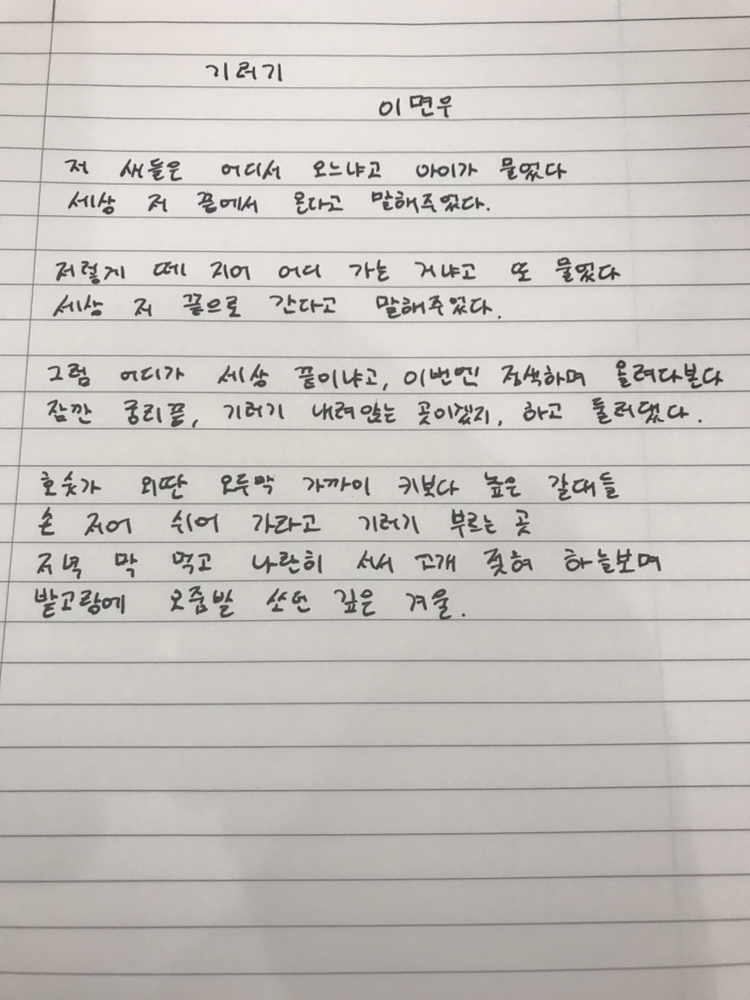 기러기
이면우
저 새들은 어디서 오느냐고 아이가 물었다
세상 저 끝에서 온다고 말해주었다.
저렇게 떼 지어 어디 가는 거냐고 또 물었다
세상 저 끝으로 간다고 말해주었다.
그럼 어디가 세상 끝이냐고, 이번엔 정색하며 올려다본다
잠깐 궁리 끝, 기러기 내려앉는 곳이겠지, 하고 둘러댔다.
호숫가 외딴 오두막 가까이 키보다 높은 갈대들
손 저어 쉬어 가라고 기러기 부르는 곳
저녁 막 먹고 나란히 서서 고개 젖혀 하늘보며
밭고랑에 오줌발 쏘던 깊은 겨울.